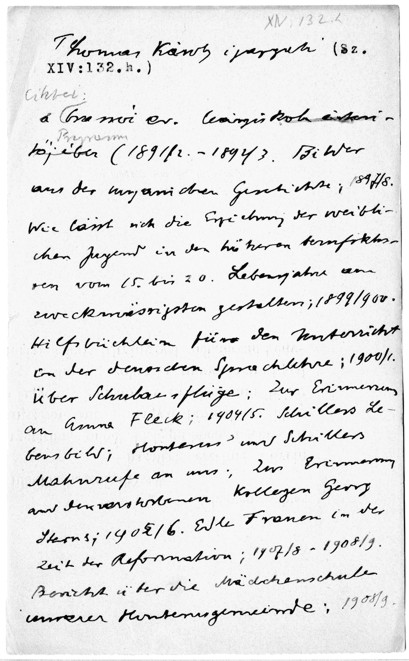 XIV. 132. h
Thomas Károly igazgató (Sz.
XIV:132.h.)
Cikkei:
a Brassói ev. leányiskola értesí-
Programm
tőjében (1891/2. - 1892/3. Bilder
aus der ungarischen Geschichte; 1897/8.
Wie lässt sich die Erziehung der weibli-
chen Jugend in den höheren berufsklas-
sen vom 15. bis 20. Lebensjahre am
zweckmässigsten gestalten; 1899/900.
Hilfsbüchlein für den Unterricht
in der deutschen Sprachlehre; 1900/1.
Über Schulausflüge; Zur Erinnerung
an Anna Fleck; 1904/5. Schillers Le-
bensbild; Honterus' und Schillers
Mahnrufe an uns; Zur Erinnerung
an den verstorbenen Kollegen Georg
1905/6. Edle Frauen in der
Zeit der Reformation; 1907/8 - 1908/9.
Bericht über die Mädchenschule
unserer Honterusgemeinde; 1908/9.